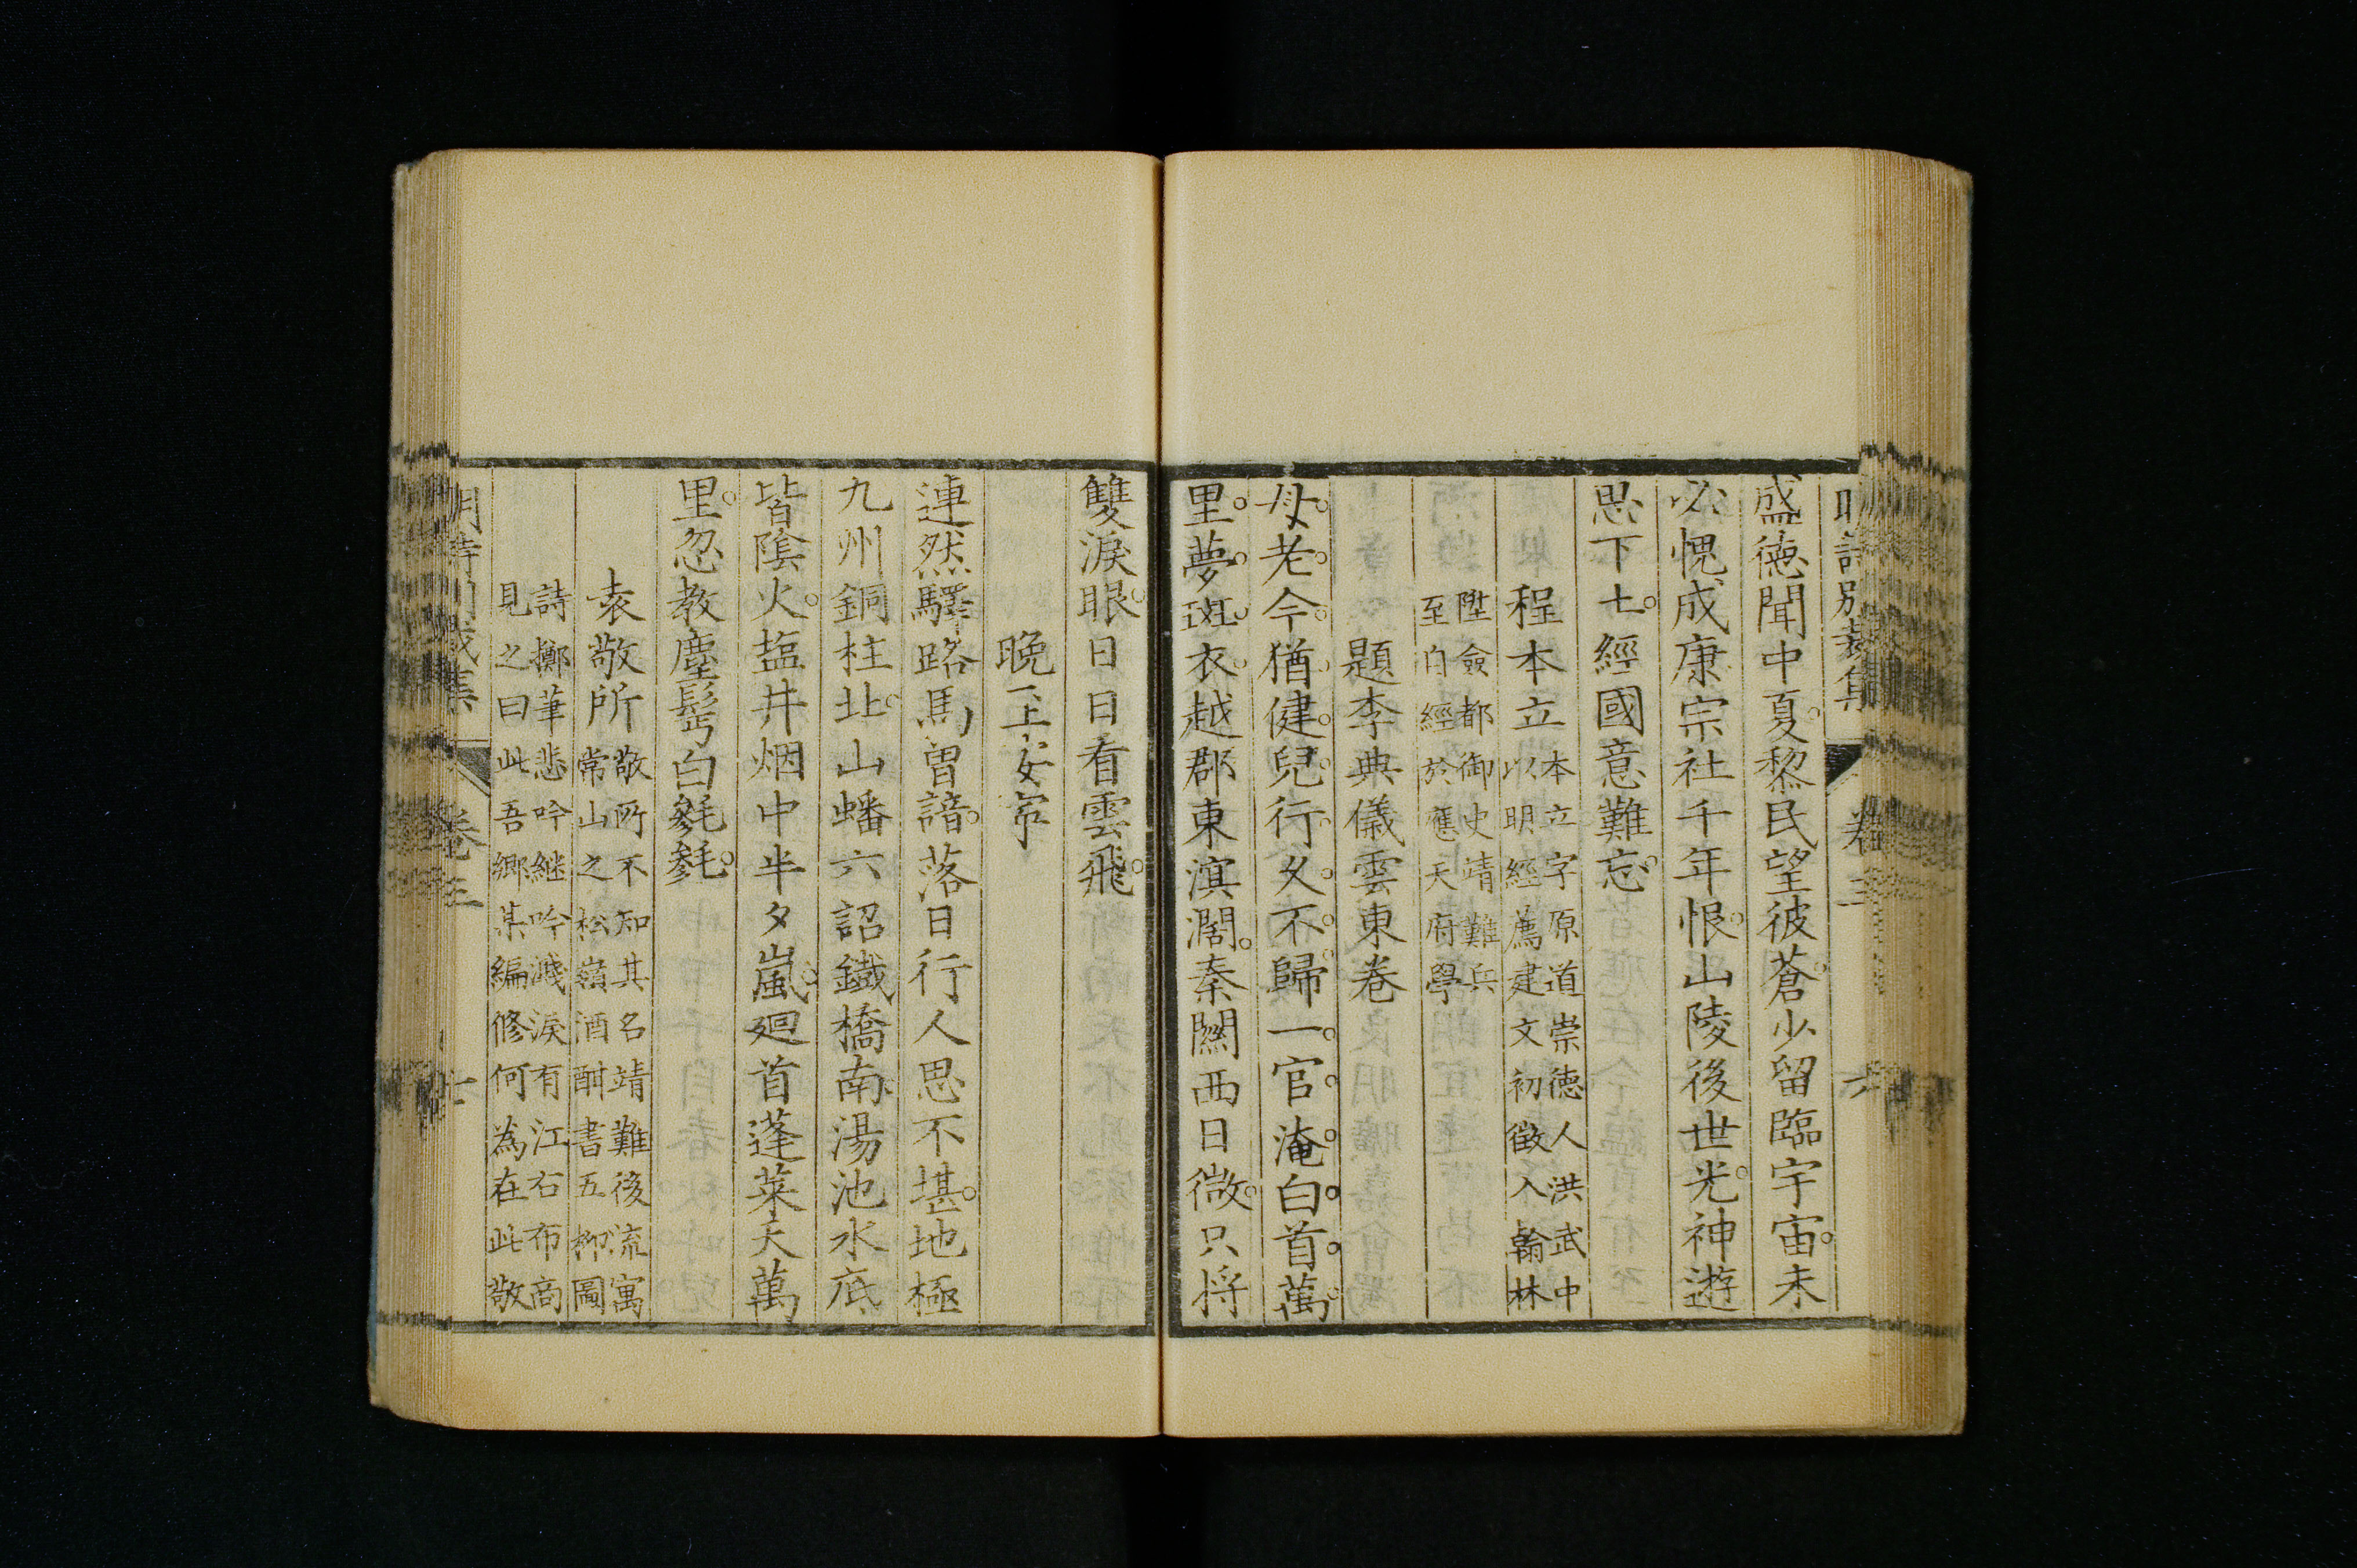 盛德聞中夏黎民望彼蒼少留臨宇宙未
必愧成康宗社千年恨山陵後世光神遊
思下士經國意難忘
程本立本立字原道崇德人洪武中
以明經薦建文初徵入翰林
陞僉都御史靖難兵
至自經於應天府學
題李典儀雲東卷
母老今猶健兒行久不歸一官淹白首萬
里夢斑衣越郡東溟濶秦關西日微只将
雙淚眼日日看雲飛
晚至安寧
連然驛路馬曽諳落日行人思不堪地極
九州銅柱北山蟠六詔鐵橋南湯池水底
皆陰火塩井烟中半夕嵐廻首蓬萊天萬
里忽教塵鬂白毿毿
袁敬所敬所不知其名靖難後流寓
常山之松嶺酒酣書五柳圖
詩擲筆悲吟継吟濺淚有江右布商
見之曰此吾鄉某編修何為在此敬
卷三